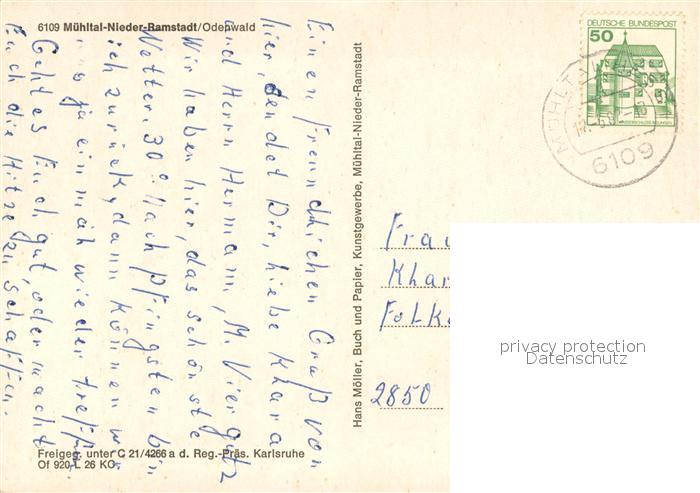 6109 Mühltal-Nieder-Ramstadt/Odenwald
Einen freundlichen Gruß von
hier, sendet Dir, liebe Khara
und Herrn Hermann, M. Viergutz
Wir haben hier, das schönste
Wetter. 30° Nach Pfingsten bin
ich zurück, dann können wir
uns ja einmal wieder treffen.
Geht es Euch gut, oder macht
Euch die Hitze zu schaffen.
Freigeg. unter C 21/4266 a d. Reg.-Präs. Karlsruhe
Of 920-L 26 KO
Hans Möller, Buch und Papier, Kunstgewerbe, Mühltal-Nieder-Ramstadt
DEUTSCHE BUNDESPOST
50
MÜHLT
6109
Frau
Khar
Folk
2850
privacy protection
Datenschutz